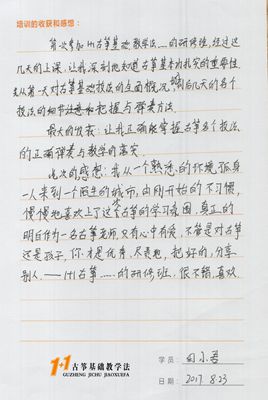 培训的收获和感想:
首次参加1+1古筝基础教学法……的研修班,经过这
几天的上课,让我深刻地知道古筝基本功扎实的重要性
从第一天对古筝基础技法的全面概况 到后几天的各个
技法的细节 把握与弹奏方法
最大的发表:让我正确能掌握古筝各个技法
的正确弹奏与教学的落实.
此次的感想:我从一个熟悉的环境 孤身
一人来到一个陌生的城市,由刚开始的不习惯,
慢慢地喜欢上了这个古筝的学习氛围,真正的
明白作为一名古筝老师,只有心中有爱,不管是对古筝
还是孩子,你才是优秀,尽是地,把好的,分享
别人. ——1+1古筝……的研修班,很不错,喜欢.
1+1古筝基础教学法
GUZHENG JICHU JIAOXUEFA
学员:
日期: 2017. 8.23